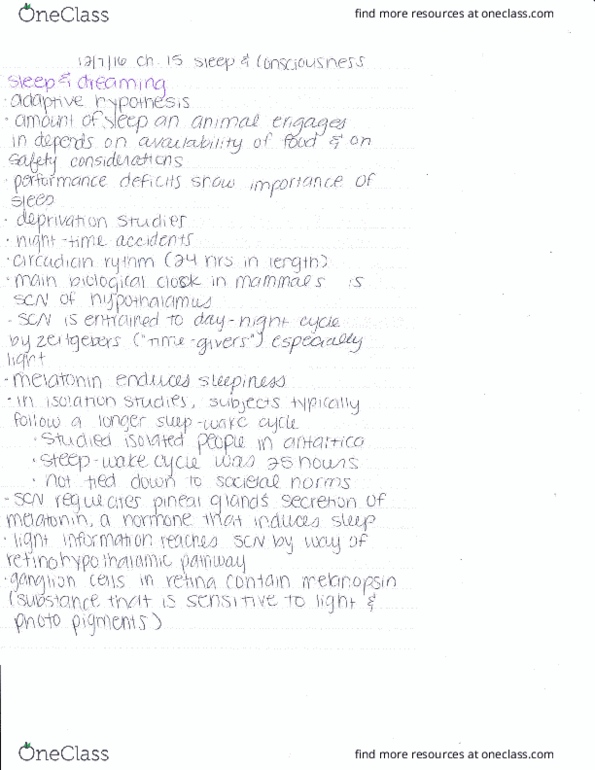 OneClass
find more resources at oneclass.com
12/7/16 Ch. 15 Sleep & Consciousness
Sleep & dreaming
· adaptive hypothesis
· amount of sleep an animal engages
in depends on availability of food & on
safety considerations
· performance deficits show importance of
sleep
· deprivation studies
· night-time accidents
· circadian rythm (24 hrs in length)
· main biological clock in mammals is
SCN of hypothalamus
- SCN is entrained to day-night cycle
by zeitgebers ("time-givers") especially
light
· melatonin enduces sleepiness
· in isolation studies, subjects typically
follow a longer sleep-wake cycle
· studied isolated people in antartica
· sleep-wake cycle was 25 hours
· not tied down to societal norms
- SCN regulates pineal glands secretion of
melatonin, a hormone that induces sleep
· light information reaches SCN by way of
retinohypothalamic pathway
· ganglion cells in retina contain melanopsin
(substance that is sensitive to light &
photo pigments)
OneClass
find more resources at oneclass.com